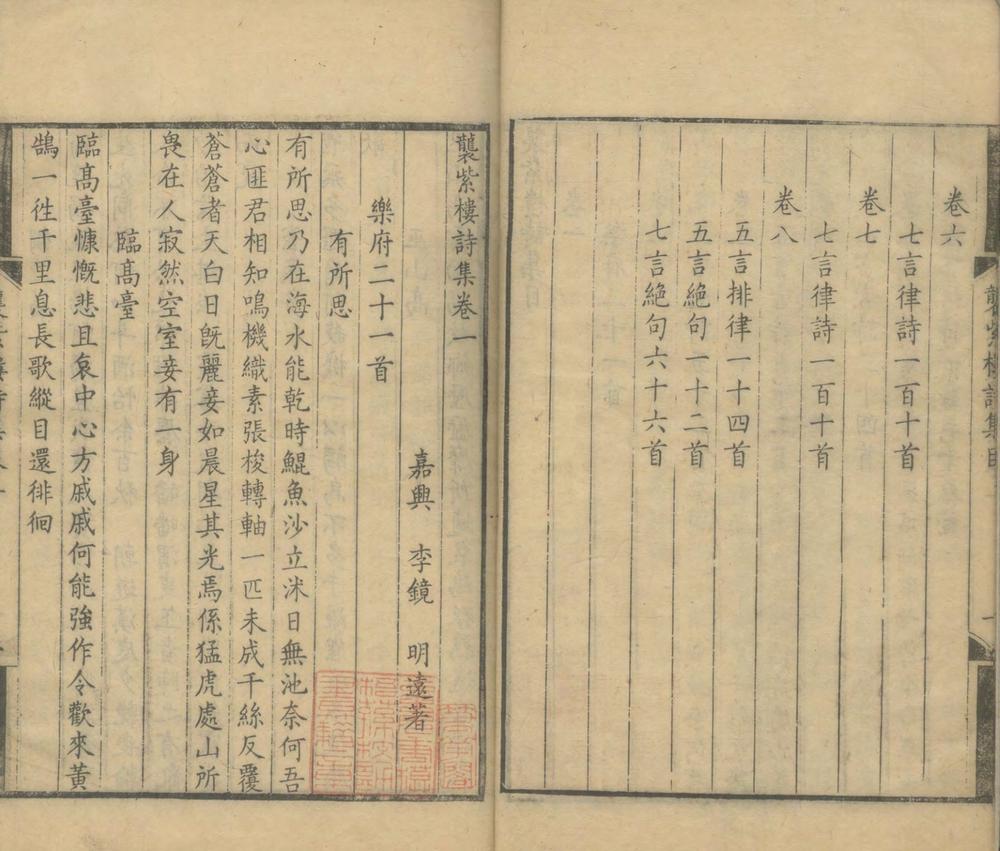 卷六
七言律詩一百十首
卷七
七言律詩一百十首
卷八
五言排律一十四首
五言絕句一十二首
七言絕句六十六首
襲紫樓詩集卷一
嘉興 李鏡 明遠著
樂府二十一首
有所思
有所思乃在海水能乾時鯤魚沙立沐日無池奈何吾
心匪君相知鳴機織素張梭轉軸一匹未成千絲反覆
蒼蒼者天白日旣麗妾如晨星其光焉係猛虎處山所
畏在人寂然空室妾有一身
臨髙臺
臨髙臺慷慨悲且哀中心方戚戚何能強作令歡來黃
鵠一徃千里息長歌縱目還徘徊